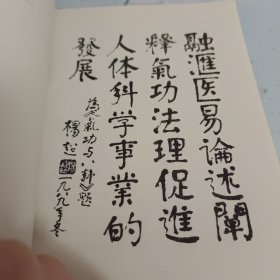 融滙医易論述闡
释氣功法理促進
人体科学事業的
發展
為《氣功与八卦》题
楊超
一九八九年冬